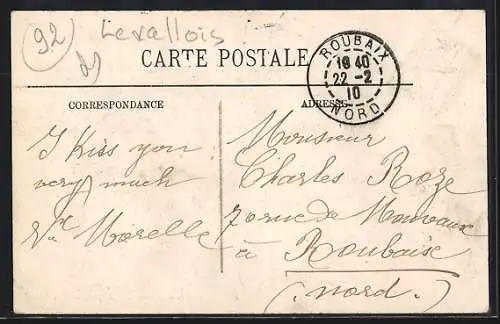 (92) Levallois
CARTE POSTALE
ROUBAIX
18 40
22 -2
10
NORD
CORRESPONDANCE
ADRESSE
I Kiss you
very much
Morelle
Monsieur
Charles Roze
70 rue de Mouvaux
à Roubaix
(Nord.)